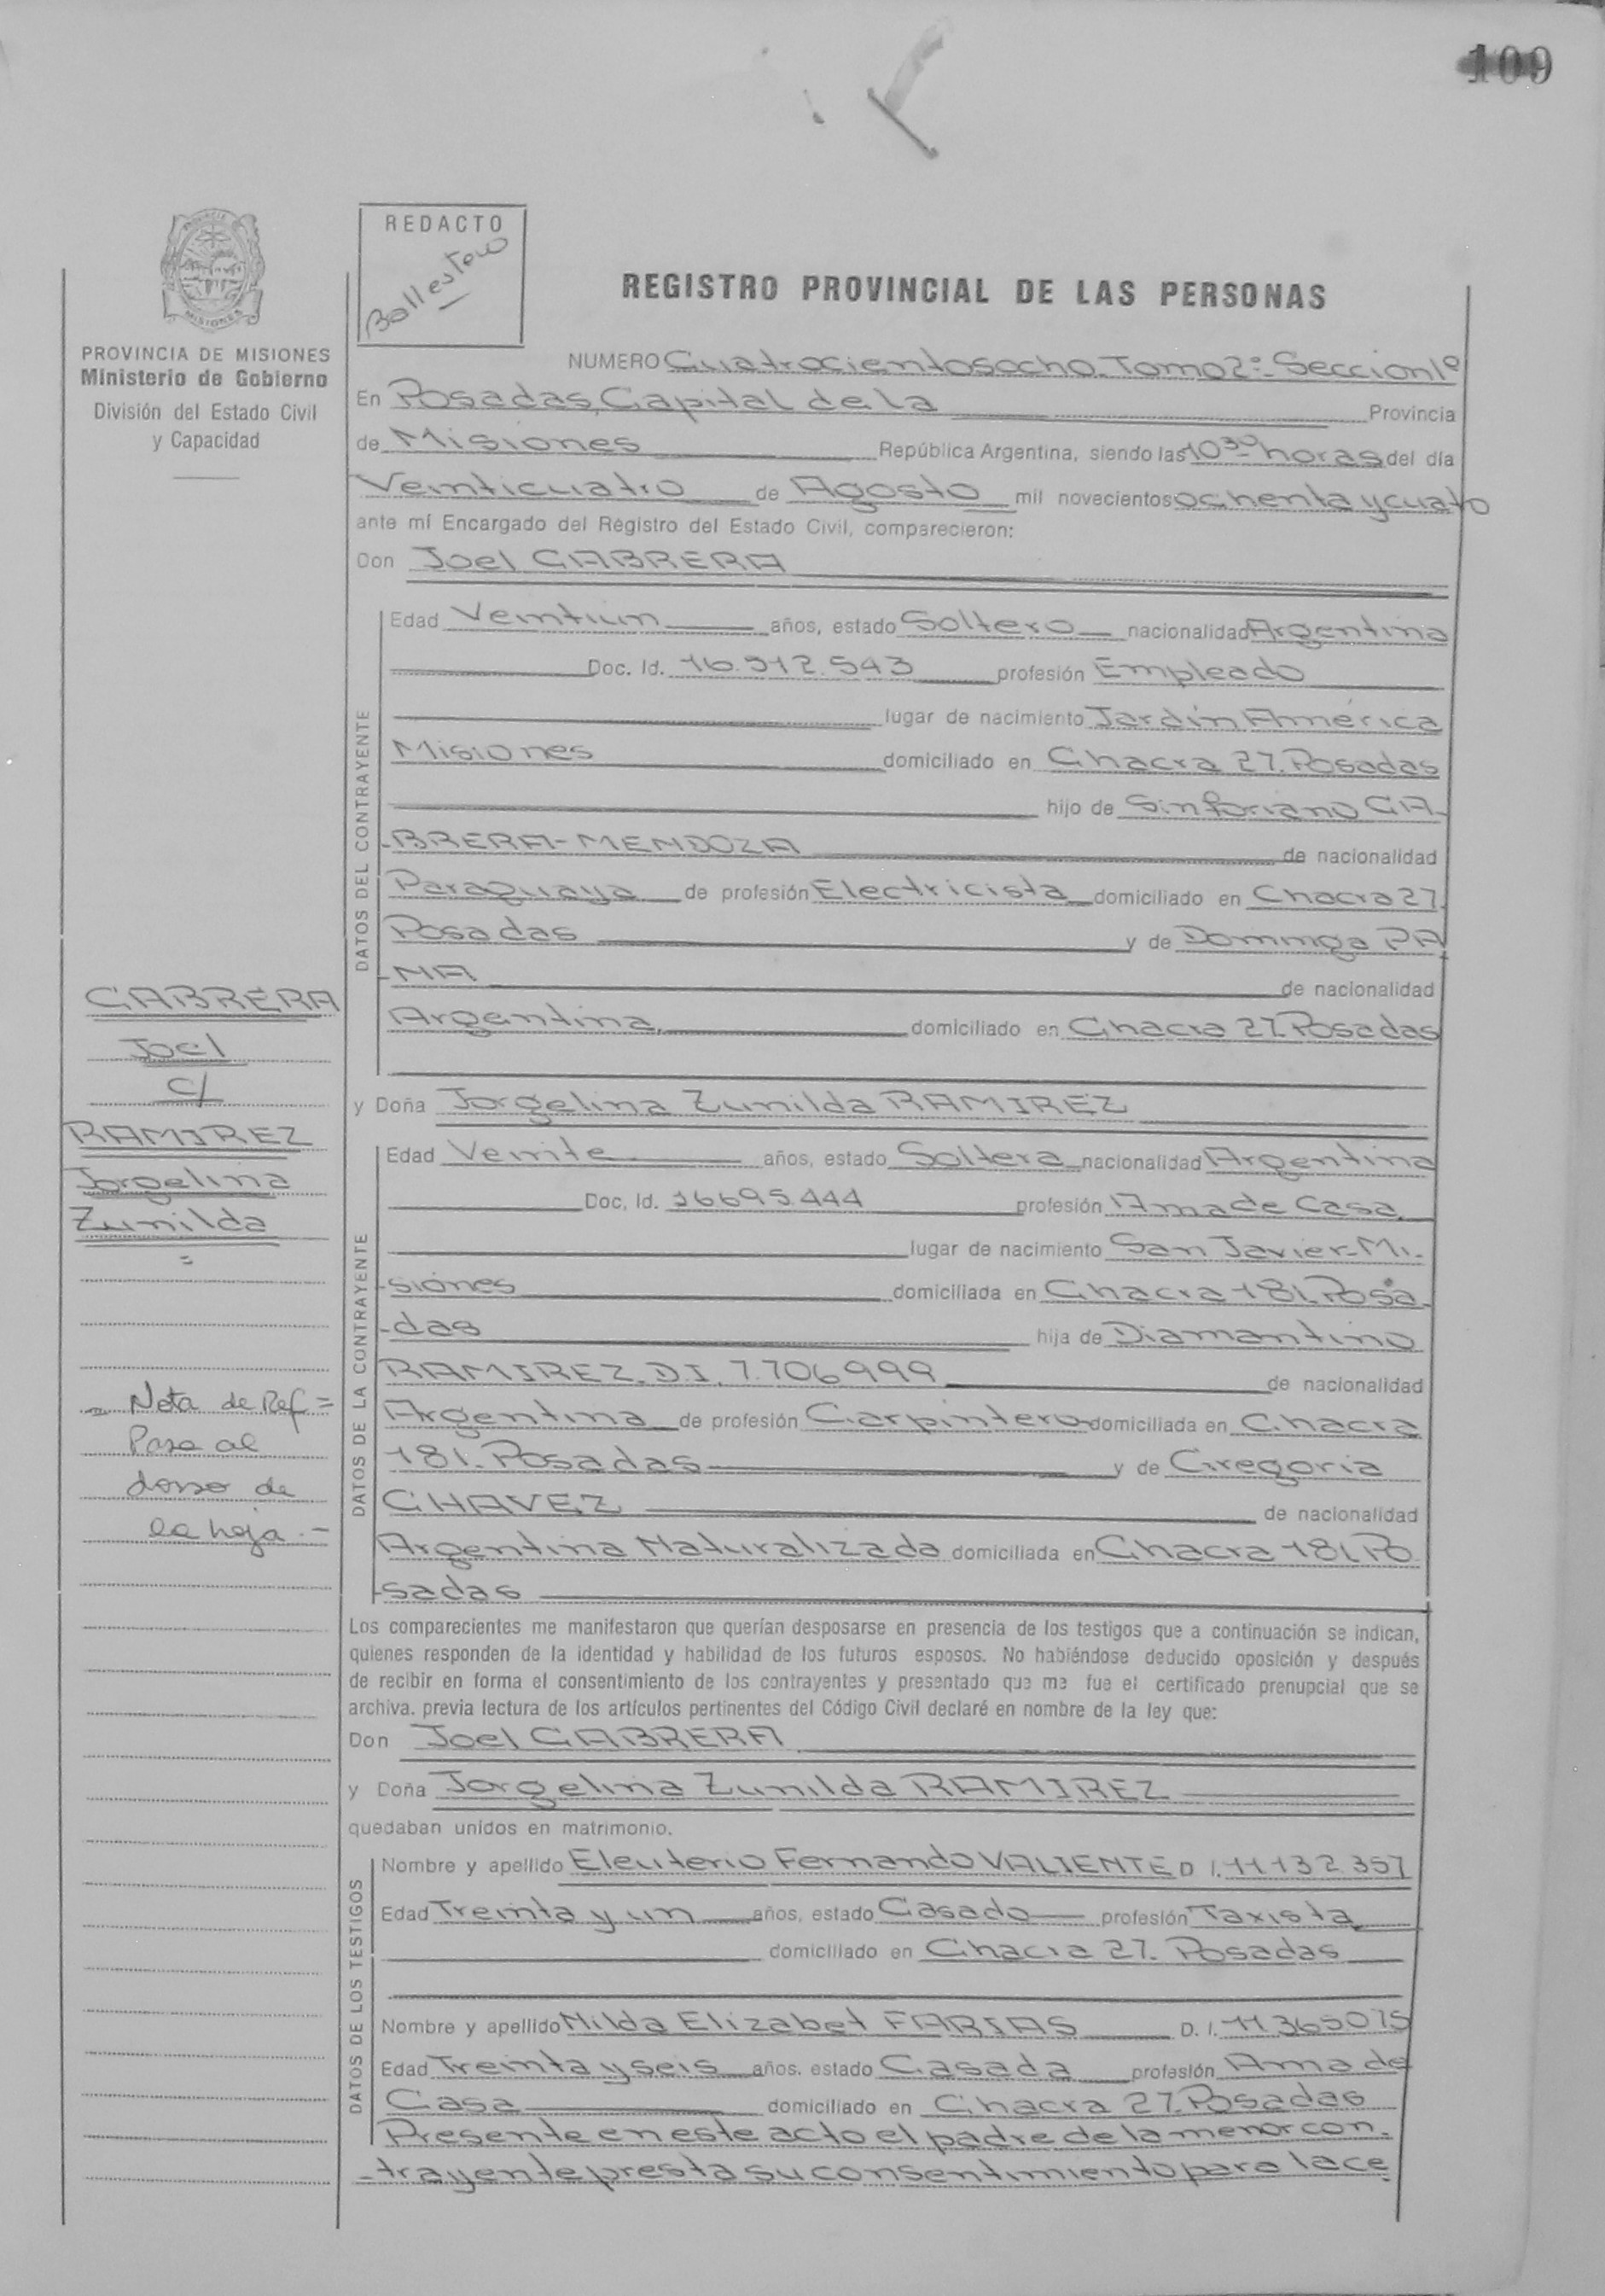 109
REDACTO
Ballestero
PROVINCIA
MISIONES
PROVINCIA DE MISIONES
Ministerio de Gobierno
División del Estado Civil
y Capacidad
REGISTRO PROVINCIAL DE LAS PERSONAS
NUMERO Cuatrocientosocho. Tomo 2º- Seccion 1º
En Posadas, Capital de la Provincia
de Misiones República Argentina, siendo las 10 30 horas del día
Veinticuatro de Agosto mil novecientos ochenta y cuatro
ante mí Encargado del Registro del Estado Civil, comparecieron:
Don Joel CABRERA
DATOS DEL CONTRAYENTE
Edad Veintiun años, estado Soltero nacionalidad Argentina
Doc. Id. 16.512.543 profesión Empleado
lugar de nacimiento Jardín América
Misiones domiciliado en Chacra 27. Posadas
hijo de Sinforiano CA-
-BRERA-MENDOZA de nacionalidad
Paraguaya de profesión Electricista domiciliado en Chacra 27.
Posadas y de Dominga PA
-NA de nacionalidad
Argentina. domiciliado en Chacra 27. Posadas
CABRERA
Joel
c/
RAMIREZ
Jorgelina
Zunilda
=
y Doña Jorgelina Zunilda RAMIREZ
DATOS DE LA CONTRAYENTE
Edad Veinte años, estado Soltera nacionalidad Argentina
Doc. Id. 16695.444 profesión Ama de Casa
lugar de nacimiento San Javier-Mi-
-siones domiciliada en Chacra 181. Posa-
-das hija de Diamantino
RAMIREZ. D.I. 7.706999 de nacionalidad
Argentina de profesión Carpintero domiciliada en Chacra
181. Posadas y de Gregoria
CHAVEZ de nacionalidad
Argentina Naturalizada domiciliada en Chacra 181. Po
-sadas
- Nota de Ref =
Pasa al
dorso de
la hoja.-
Los comparecientes me manifestaron que querían desposarse en presencia de los testigos que a continuación se indican,
quienes responden de la identidad y habilidad de los futuros esposos. No habiéndose deducido oposición y después
de recibir en forma el consentimiento de los contrayentes y presentado que me fue el certificado prenupcial que se
archiva. previa lectura de los artículos pertinentes del Código Civil declaré en nombre de la ley que:
Don Joel CABRERA
y Doña Jorgelina Zunilda RAMIREZ
quedaban unidos en matrimonio.
DATOS DE LOS TESTIGOS
Nombre y apellido Eleuterio Fernando VALIENTE D. I. 11.132.357
Edad Treinta y un años, estado Casado profesión Taxista
domiciliado en Chacra 27. Posadas
Nombre y apellido Nilda Elizabet FARIAS D. I. 11.365075
Edad Treinta y seis años. estado Casada profesión Ama de
Casa domiciliado en Chacra 27. Posadas
Presente en este acto el padre de la menor con-
-trayente presta su consentimiento para la ce